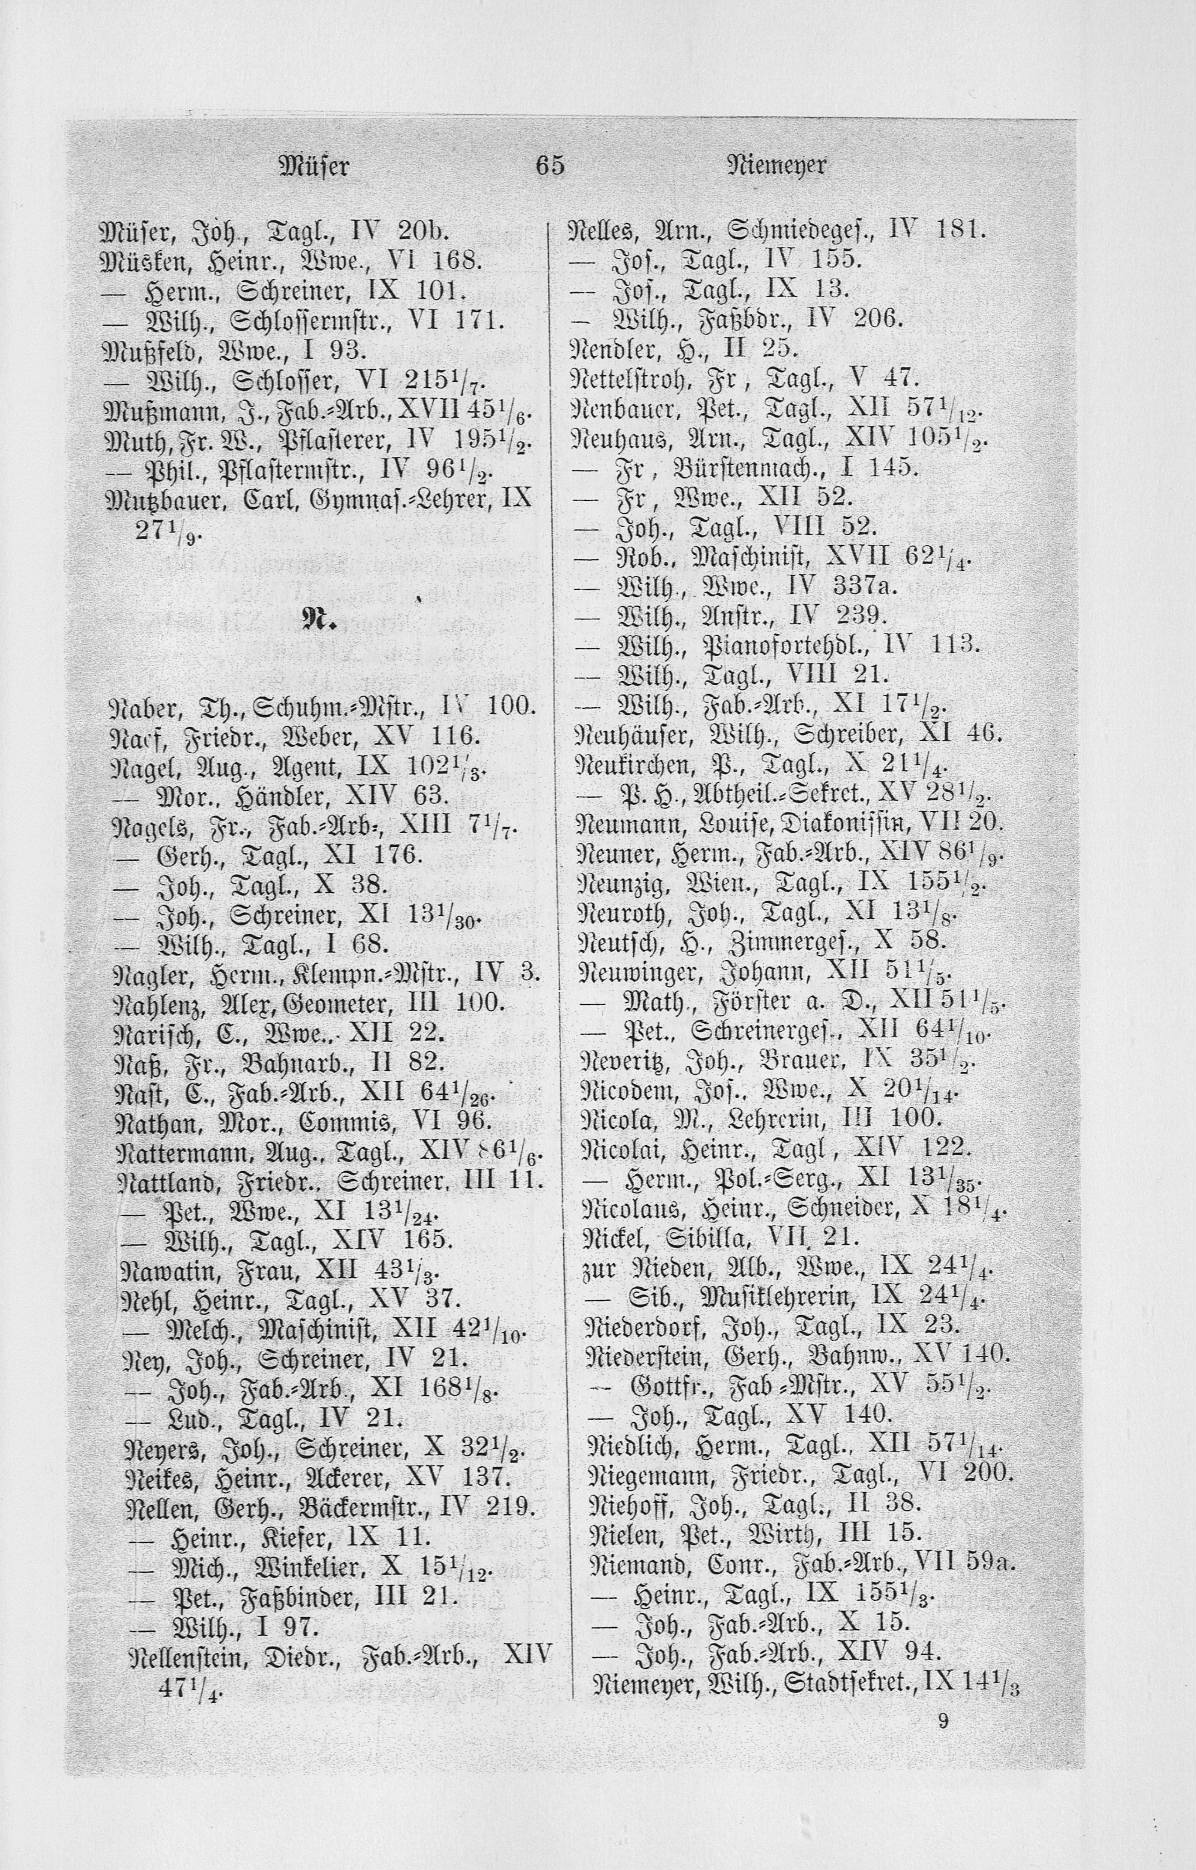 Müser 65 Niemeyer
Müser, Joh., Tagl., IV 20b.
Müsken, Heinr., Wwe., VI 168.
— Herm., Schreiner, IX 101.
— Wilh., Schlossermstr., VI 171.
Mußfeld, Wwe., I 93.
— Wilh., Schlosser, VI 215 1/7.
Mußmann, J., Fab.-Arb., XVII 45 1/6.
Muth, Fr. W., Pflasterer, IV 195 1/2.
— Phil., Pflastermstr., IV 96 1/2.
Mutzbauer, Carl, Gymnas.-Lehrer, IX
27 1/9.
N.
Naber, Th., Schuhm.-Mstr., IV 100.
Naef, Friedr., Weber, XV 116.
Nagel, Aug., Agent, IX 102 1/3.
— Mor., Händler, XIV 63.
Nagels, Fr., Fab.-Arb., XIII 7 1/7.
— Gerh., Tagl., XI 176.
— Joh., Tagl., X 38.
— Joh., Schreiner, XI 13 1/30.
— Wilh., Tagl., I 68.
Nagler, Herm., Klempn.-Mstr., IV 3.
Nahlenz, Alex, Geometer, III 100.
Narisch, C., Wwe., XII 22.
Naß, Fr., Bahnarb., II 82.
Nast, C., Fab.-Arb., XII 64 1/26.
Nathan, Mor., Commis, VI 96.
Nattermann, Aug., Tagl., XIV 86 1/6.
Nattland, Friedr., Schreiner, III 11.
— Pet., Wwe., XI 13 1/24.
— Wilh., Tagl., XIV 165.
Nawatin, Frau, XII 43 1/3.
Nehl, Heinr., Tagl., XV 37.
— Melch., Maschinist, XII 42 1/10.
Ney, Joh., Schreiner, IV 21.
— Joh., Fab.-Arb., XI 168 1/8.
— Lud., Tagl., IV 21.
Neyers, Joh., Schreiner, X 32 1/2.
Neikes, Heinr., Ackerer, XV 137.
Nellen, Gerh., Bäckermstr., IV 219.
— Heinr., Kiefer, IX 11.
— Mich., Winkelier, X 15 1/12.
— Pet., Faßbinder, III 21.
— Wilh., I 97.
Nellenstein, Diedr., Fab.-Arb., XIV
47 1/4.
Nelles, Arn., Schmiedeges., IV 181.
— Jos., Tagl., IV 155.
— Jos., Tagl., IX 13.
— Wilh., Faßbdr., IV 206.
Nendler, H., II 25.
Nettelstroh, Fr, Tagl., V 47.
Nenbauer, Pet., Tagl., XII 57 1/12.
Neuhaus, Arn., Tagl., XIV 105 1/2.
— Fr, Bürstenmach., I 145.
— Fr, Wwe., XII 52.
— Joh., Tagl., VIII 52.
— Rob., Maschinist, XVII 62 1/4.
— Wilh., Wwe., IV 337a.
— Wilh., Anstr., IV 239.
— Wilh., Pianofortehdl., IV 113.
— Wilh., Tagl., VIII 21.
— Wilh., Fab.-Arb., XI 17 1/2.
Neuhäuser, Wilh., Schreiber, XI 46.
Neukirchen, P., Tagl., X 21 1/4.
— P. H., Abtheil.-Sekret., XV 28 1/2.
Neumann, Louise, Diakonissin, VII 20.
Neuner, Herm., Fab.-Arb., XIV 86 1/9.
Neunzig, Wien., Tagl., IX 155 1/2.
Neuroth, Joh., Tagl., XI 13 1/8.
Neutsch, H., Zimmerges., X 58.
Neuwinger, Johann, XII 51 1/5.
— Math., Förster a. D., XII 51 1/5.
— Pet., Schreinerges., XII 64 1/10.
Neveritz, Joh., Brauer, IX 35 1/2.
Nicodem, Jos., Wwe., X 20 1/14.
Nicola, M., Lehrerin, III 100.
Nicolai, Heinr., Tagl, XIV 122.
— Herm., Pol.-Serg., XI 13 1/35.
Nicolaus, Heinr., Schneider, X 18 1/4.
Nickel, Sibilla, VII 21.
zur Nieden, Alb., Wwe., IX 24 1/4.
— Sib., Musiklehrerin, IX 24 1/4.
Niederdorf, Joh., Tagl., IX 23.
Niederstein, Gerh., Bahnw., XV 140.
— Gottfr., Fab-Mstr., XV 55 1/2.
— Joh., Tagl., XV 140.
Niedlich, Herm., Tagl., XII 57 1/14.
Niegemann, Friedr., Tagl., VI 200.
Niehoff, Joh., Tagl., II 38.
Nielen, Pet., Wirth, III 15.
Niemand, Conr., Fab.-Arb., VII 59a.
— Heinr., Tagl., IX 155 1/3.
— Joh., Fab.-Arb., X 15.
— Joh., Fab.-Arb., XIV 94.
Niemeyer, Wilh., Stadtsekret., IX 14 1/3
9